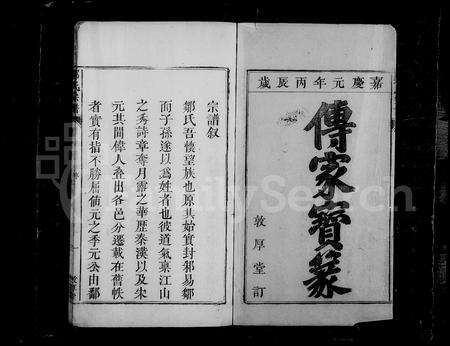 嘉慶元年丙辰歲
傳家寶篆
敦厚堂訂
宗譜叙
鄒氏吾懷望族也原其始實封邾易鄒
而子孫遂以爲姓者也彼道氣稟江山
之秀詩章奪月露之華歷秦漢以及宋
元其間偉人叠出各邑分遷載在舊帙
者實有指不勝屈値元之季元公由鄱
FamilySearch